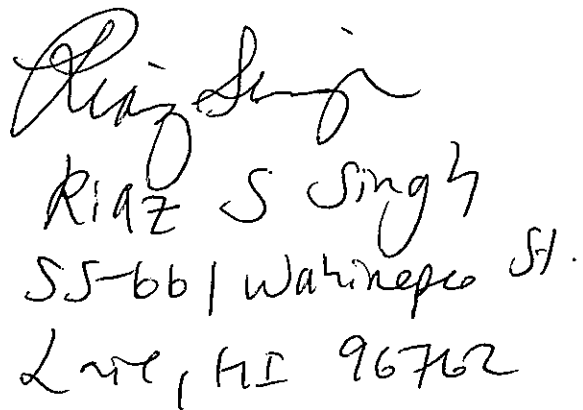 Riaz Singh
Riaz S Singh
55-661 Wahinepee St.
Laie, HI 96762